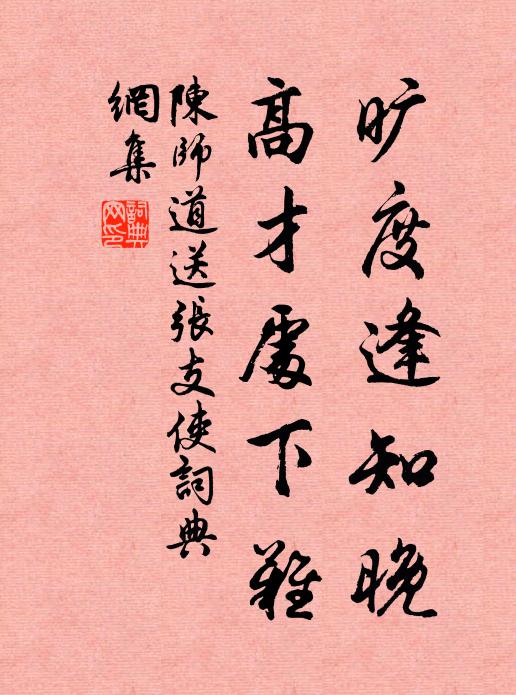 旷度逢知晚
高才處下難
陳師道送張支使詞典
網集
詞典
网印